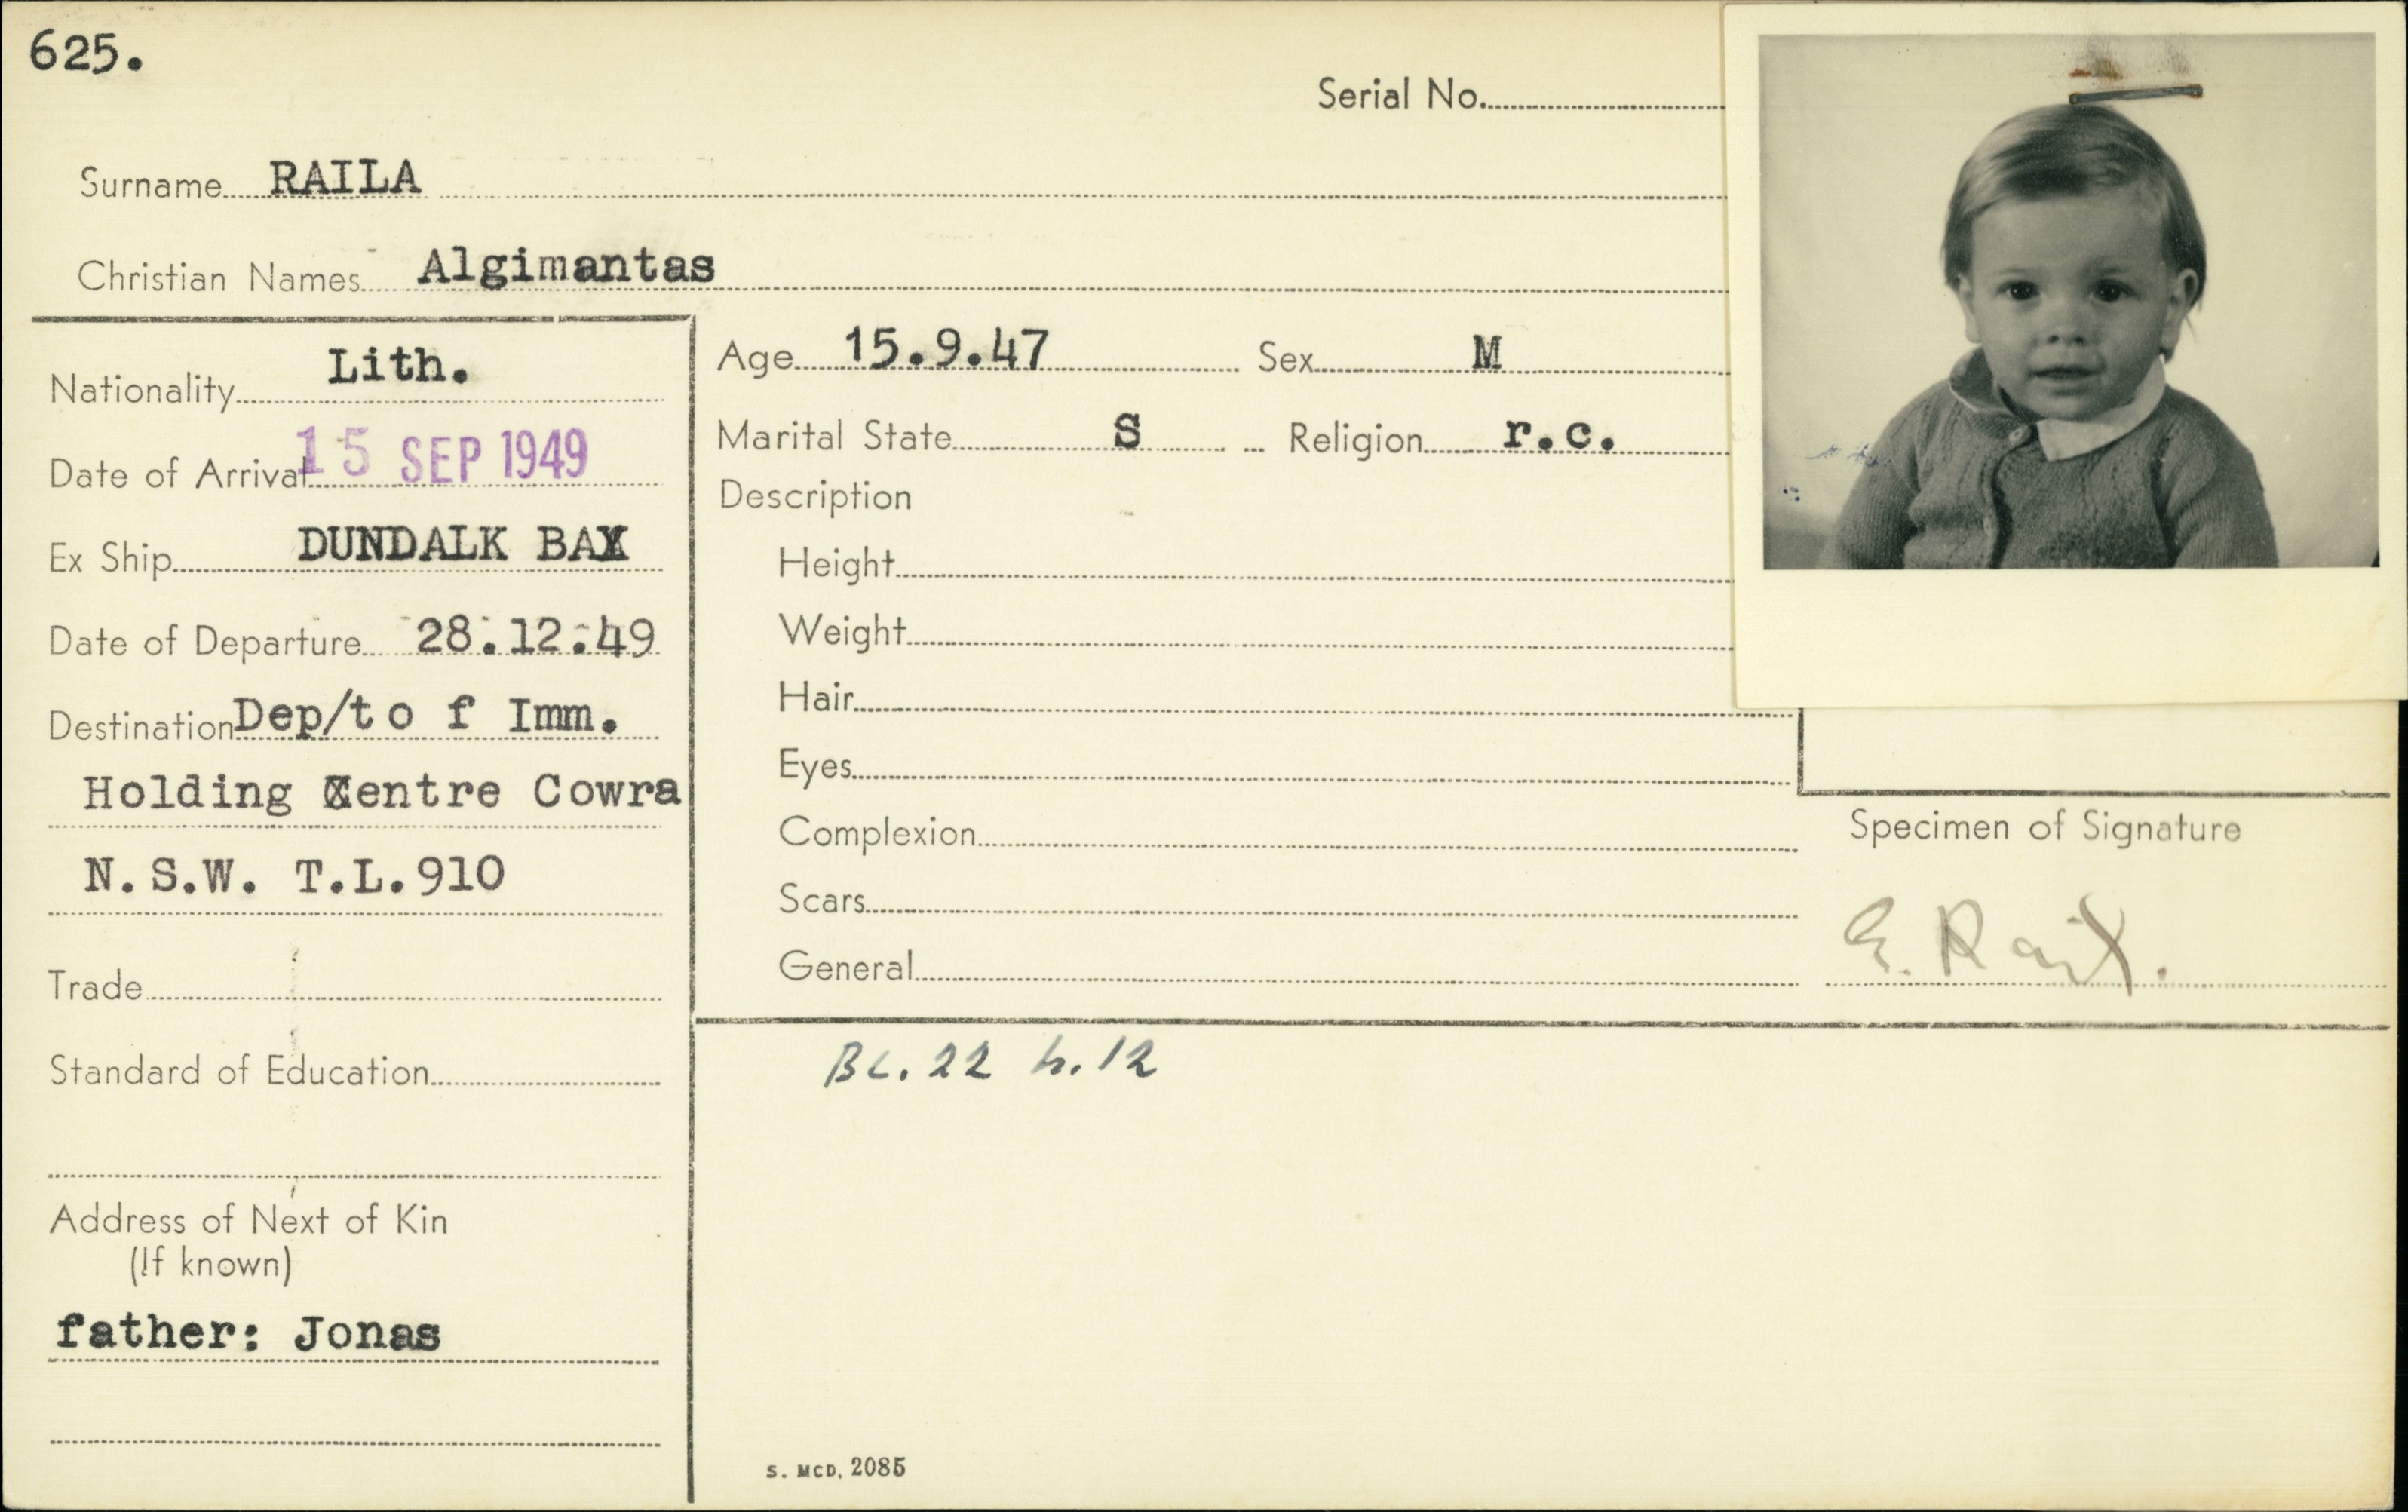 625.
Serial No.
Surname RAILA
Christian Names Algimantas
Nationality Lith.
Date of Arrival 15 SEP 1949
Ex Ship DUNDALK BAY
Date of Departure 28.12.49
Destination Dep/to f Imm.
Holding Centre Cowra
N.S.W. T.L.910
Trade
Standard of Education
Address of Next of Kin
(If known)
father: Jonas
Age 15.9.47 Sex M
Marital State S Religion r.c.
Description
Height
Weight
Hair
Eyes
Complexion
Scars
General
Specimen of Signature
BL. 22 h. 12
S. MCD. 2085